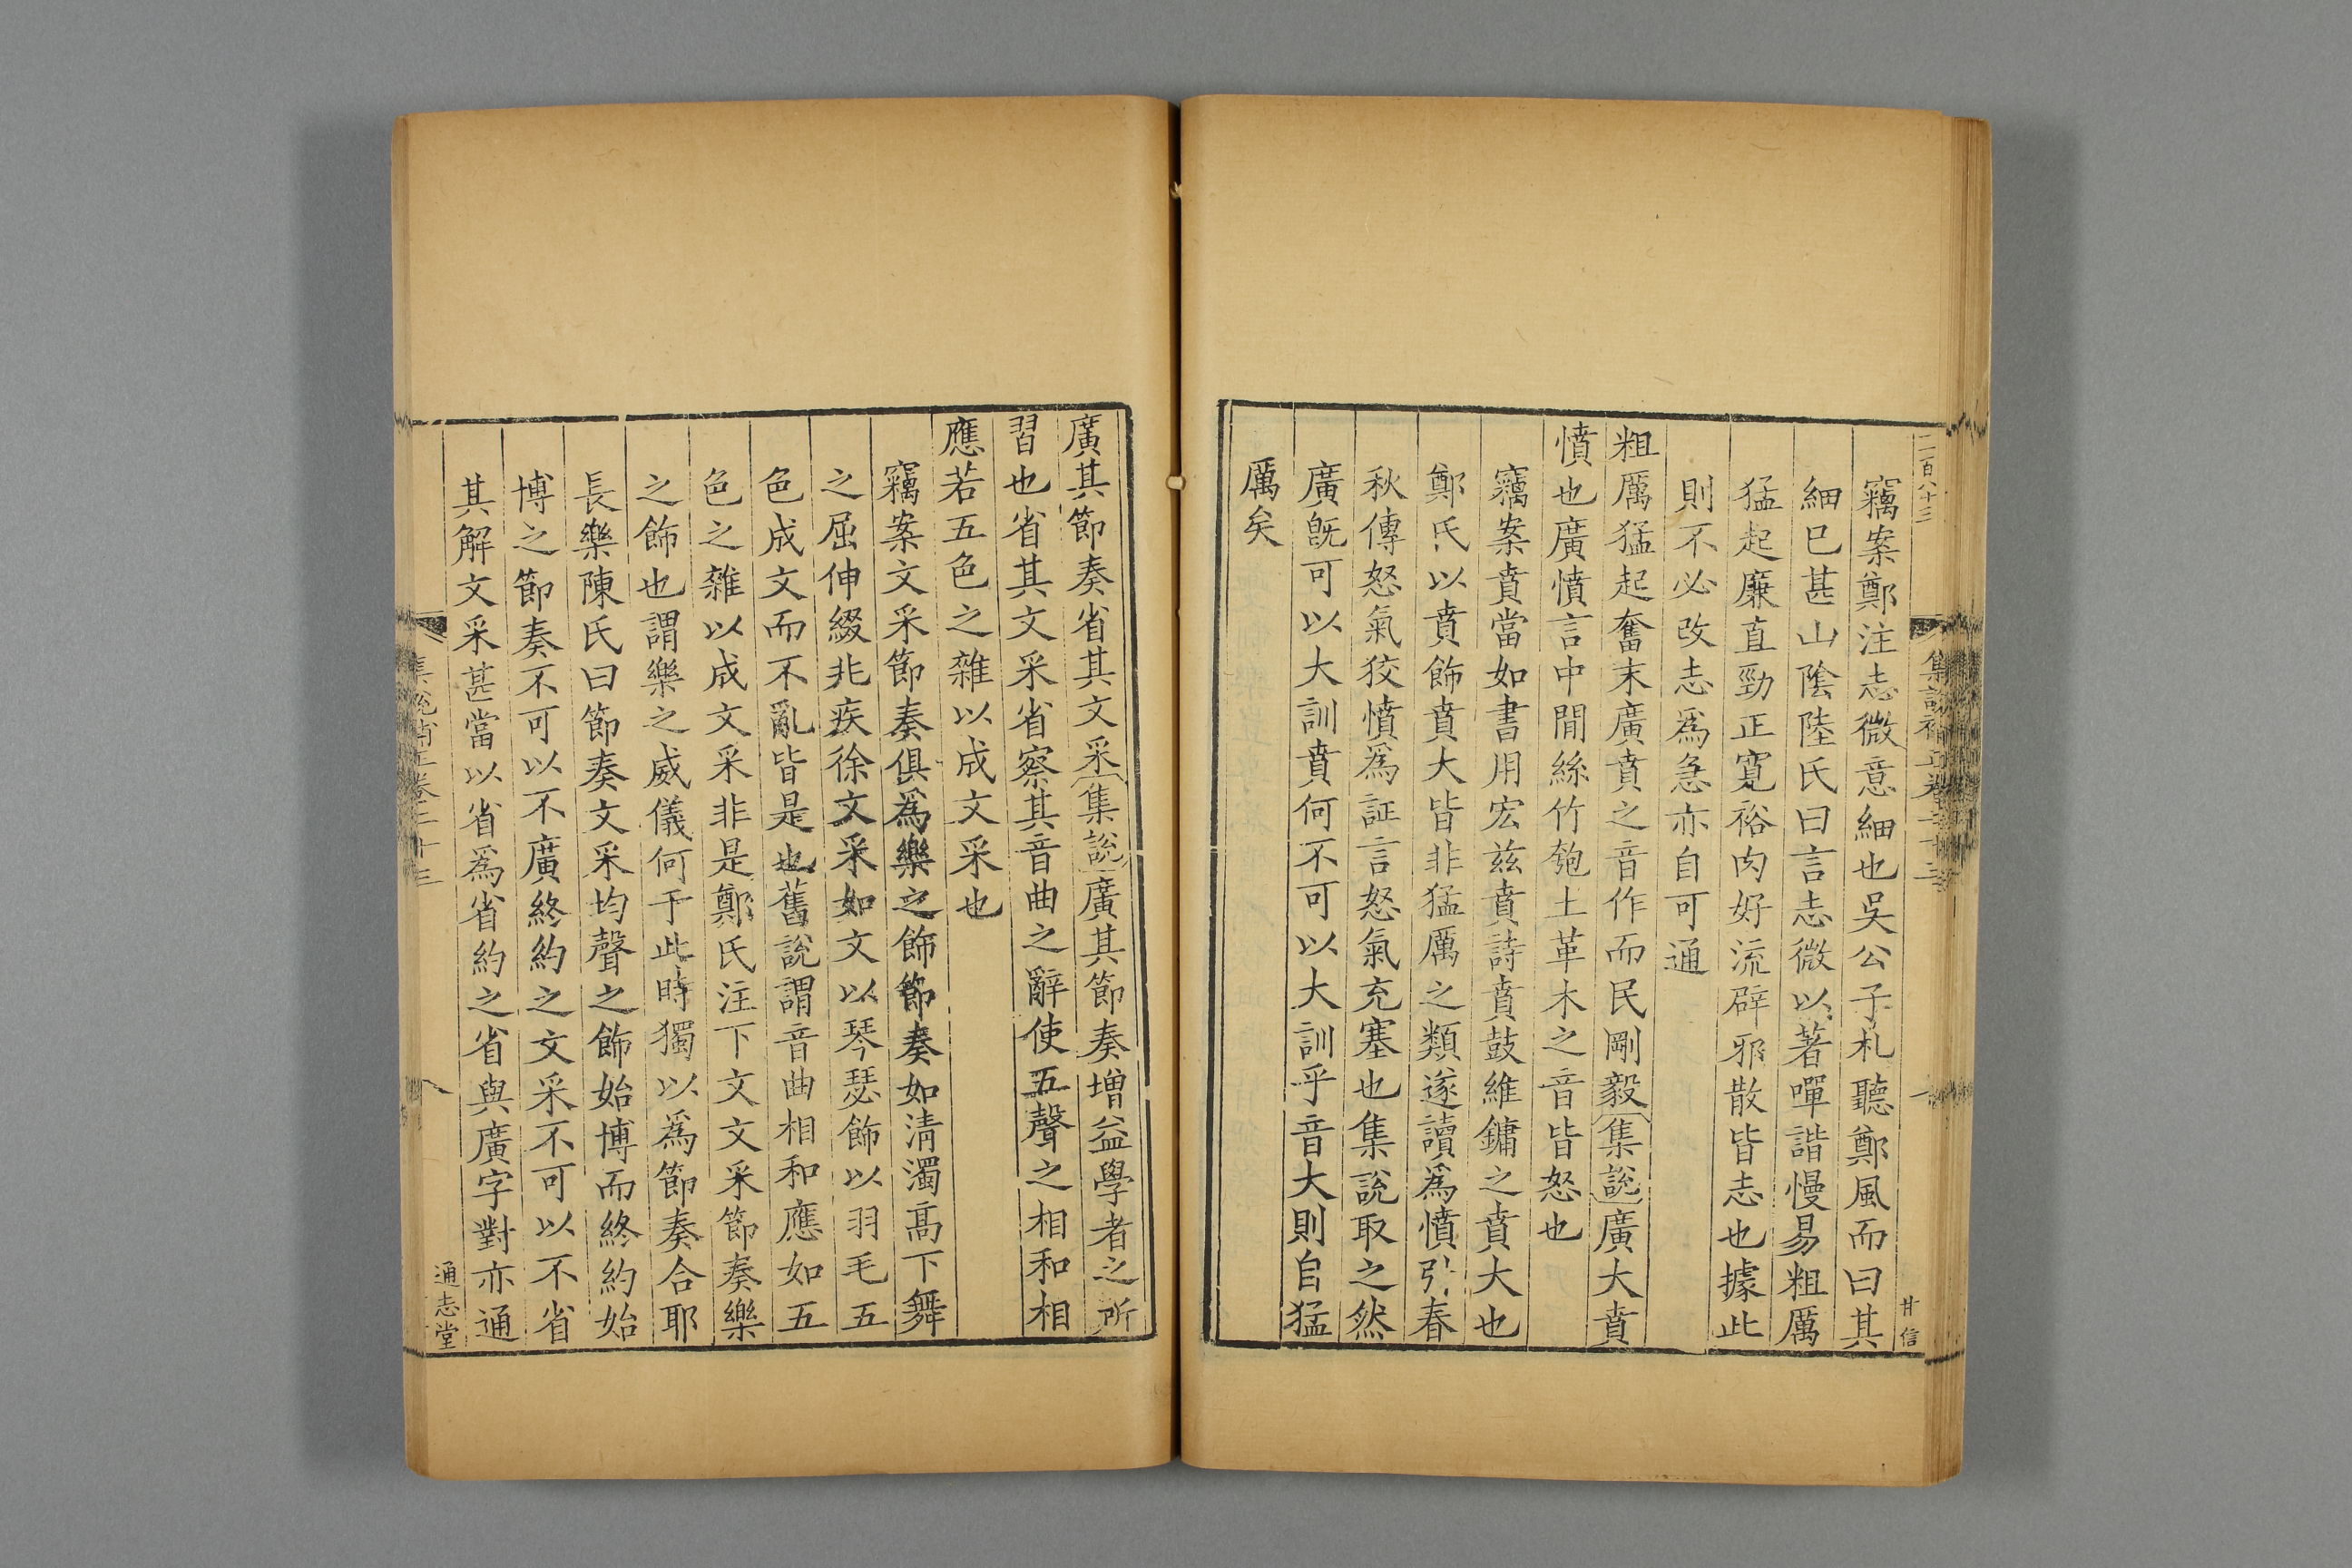 二百八十三
集說補正卷二十三
一
甘信
竊案鄭注志微意細也吳公子札聽鄭風而曰其
細巳甚山陰陸氏曰言志微以著嘽諧慢易粗厲
猛起廉直勁正寬裕肉好流辟邪散皆志也據此
則不必改志爲急亦自可通
粗厲猛起奮末廣賁之音作而民剛毅集說廣大賁
憤也廣憤言中間絲竹匏土革木之音皆怒也
竊案賁當如書用宏兹賁詩賁鼓維鏞之賁大也
鄭氏以賁飾賁大皆非猛厲之類遂讀爲憤引春
秋傳怒氣狡憤爲証言怒氣充塞也集說取之然
廣旣可以大訓賁何不可以大訓乎音大則自猛
厲矣
廣其節奏省其文采集說廣其節奏增益學者之所
習也省其文采省察其音曲之辭使五聲之相和相
應若五色之雜以成文采也
竊案文采節奏俱爲樂之飾節奏如淸濁高下舞
之屈伸綴兆疾徐文采如文以琴瑟飾以羽毛五
色成文而不亂皆是也舊說謂音曲相和應如五
色之雜以成文采非是鄭氏注下文文采節奏樂
之飾也謂樂之威儀何于此時獨以爲節奏合耶
長樂陳氏曰節奏文采均聲之飾始博而終約始
博之節奏不可以不廣終約之文采不可以不省
其解文采甚當以省爲省約之省與廣字對亦通
集說補正卷二十三
通志堂